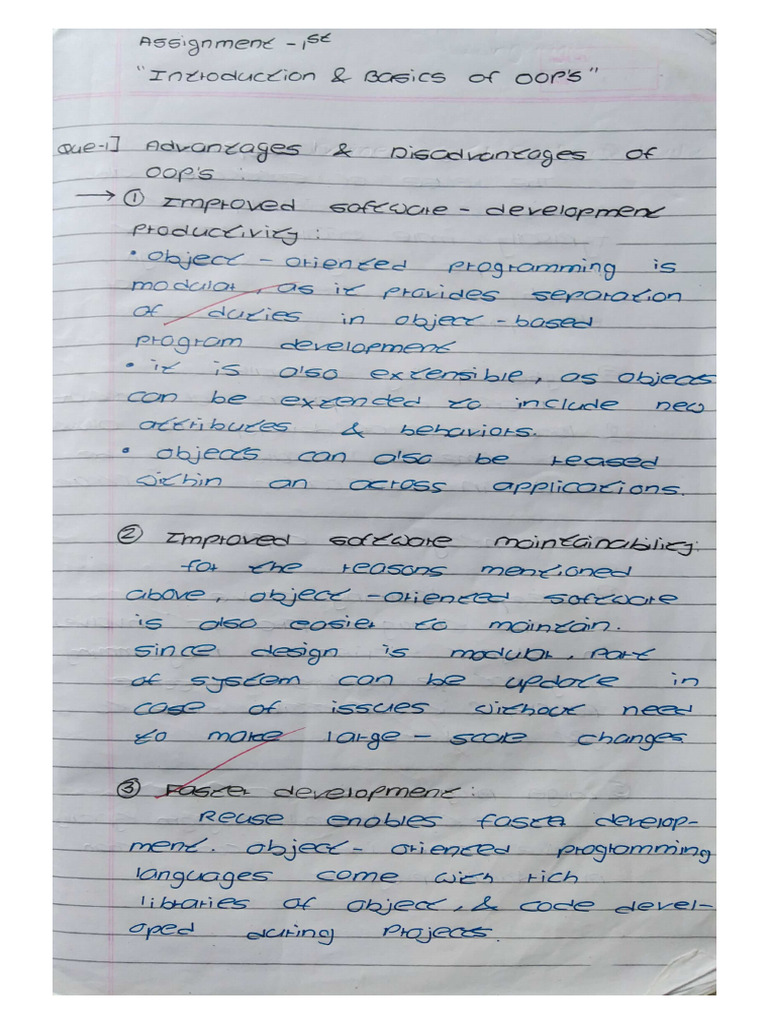 Assignment - 1st
"Introduction & Basics of OOP's"
Que-1] Advantages & Disadvantages of
OOP's :
→ ① Improved software - development
productivity :
• object - oriented programming is
modular, as it provides separation
of duties in object - based
program development
• it is also extensible, as objects
can be extended to include new
attributes & behaviors.
• objects can also be reased
within an across applications.
② Improved software maintainability:
for the reasons mentioned
above, object - oriented software
is also easier to maintain.
since design is modular, part
of system can be update in
case of issues without need
to make large - scale changes
③ Faster development :
Reuse enables faster develop-
ment. object - oriented programming
languages come with rich
libraries of object, & code devel-
oped during projects.